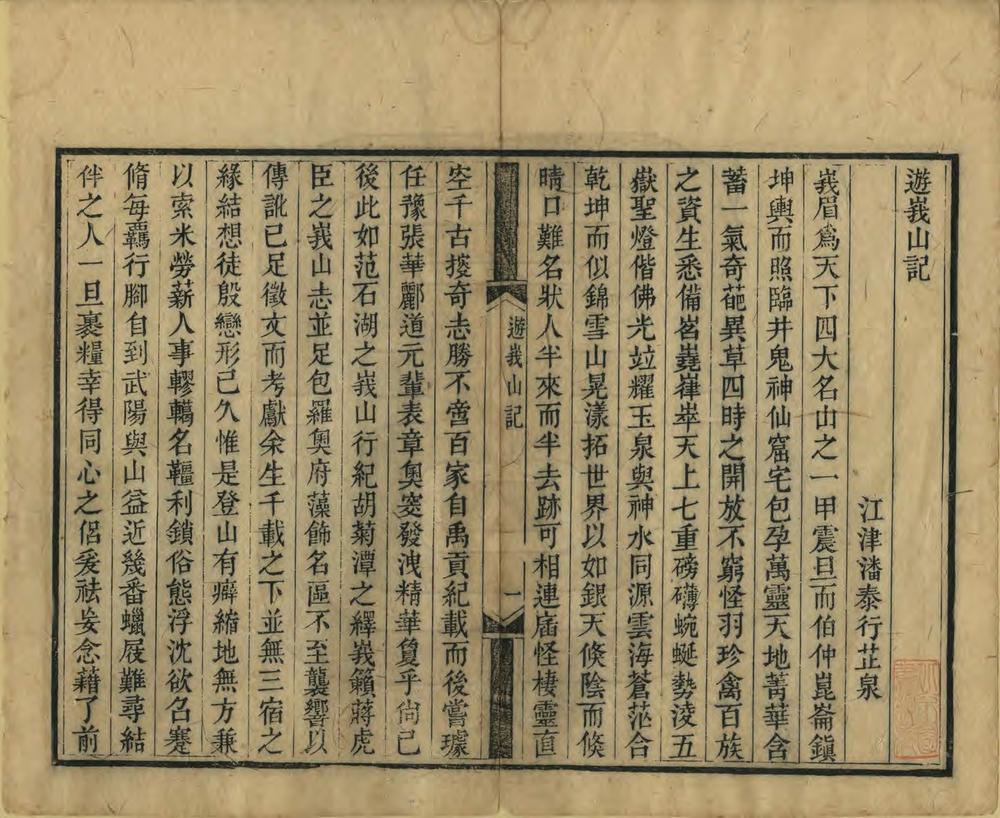 遊峩山記
江津潘泰行芷泉
峩眉爲天下四大名山之一甲震旦而伯仲崑崙鎮
坤輿而照臨井鬼神仙窟宅包孕萬靈天地菁華含
蓄一氣奇葩異草四時之開放不窮怪羽珍禽百族
之資生悉備岧嶤嵂崒天上七重磅礴蜿蜒勢淩五
嶽聖燈偕佛光竝耀玉泉與神水同源雲海蒼茫合
乾坤而似錦雪山晃漾拓世界以如銀天倏陰而倏
晴口難名狀人半來而半去跡可相連庿怪棲靈直
遊峩山記
一
空千古搜奇志勝不啻百家自禹貢紀載而後嘗璩
任豫張華酈道元輩表章奧窔發洩精華敻乎尙已
後此如范石湖之峩山行紀胡菊潭之繹峩籟蔣虎
臣之峩山志並足包羅奧府藻飾名區不至襲響以
傳訛已足徵文而考獻余生千載之下並無三宿之
緣結想徒殷戀形已久惟是登山有癖縮地無方兼
以索米勞薪人事轇轕名韁利鎖俗態浮沈欲名蹇
脩每羈行腳自到武陽與山益近幾番蠟屐難尋結
伴之人一旦裹糧幸得同心之侶爰袪妄念藉了前